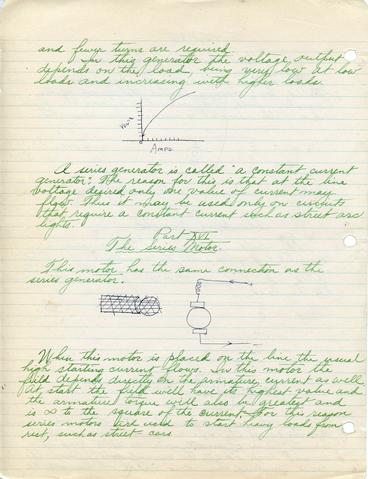 and fewer turns are required.
In this generator the voltage output
depends on the load, being very low at low
loads and increasing with higher loads.
Volts
Amps
A series generator is called "a constant current
generator". The reason for this is that at the line
voltage desired only one value of current may
flow. Thus it may be used only on circuits
that require a constant current such as street arc
lights.
Part XVI
The Series Motor.
This motor has the same connection as the
series generator.
When this motor is placed on the line the usual
high starting current flows. In this motor the
field depends directly on the armature current as well
At start the field will have its highest value and
the armature torque will also be greatest and
is ∝ to the square of the current. For this reason
series motors are used to start heavy loads from
rest, such as street cars